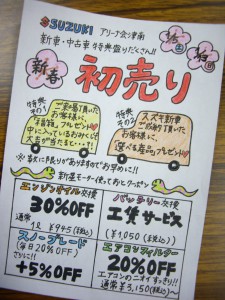 SUZUKI アリーナ会津南
新車・中古車 特典盛りたくさん!!
新春
初売り
特典その1
ご来場頂いた
お客様に、
プレゼント
中に入っているおみくじで
大吉が当たると…!
特典その2
スズキ新車
ご成約頂いた
お客様に、
選べる産品プレゼント
※数に限りがありますのでお早めに!!
エンジンオイル交換
30%OFF
通常
1ℓ ¥945(税込)
バッテリー交換
工賃サービス
(¥1,050(税込))
スノーブレード
(毎日20%OFF)
さらに!!
+5%OFF
エアコンフィルター
20%OFF
エアコンのニオイすっきり!!
通常¥3,150(税込)~